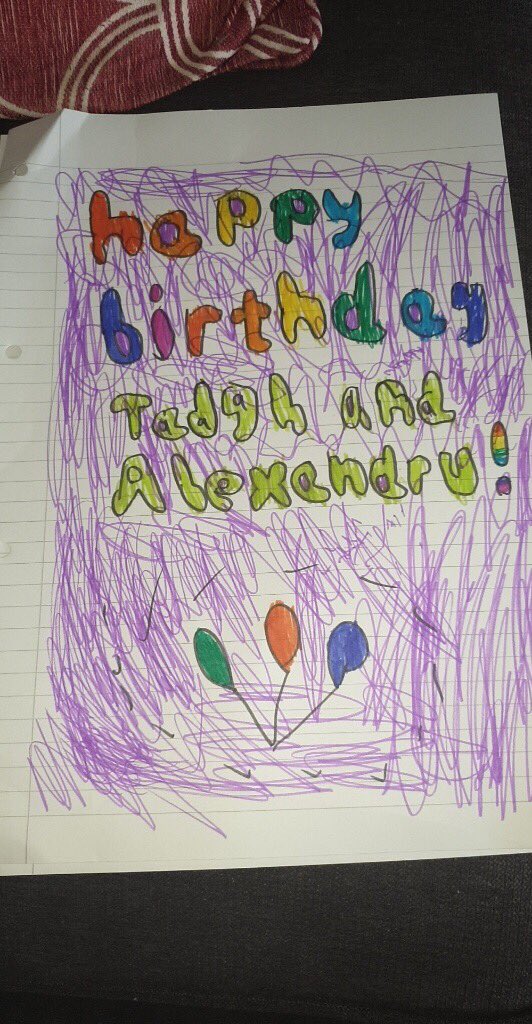 happy
birthday
Tadgh and
Alexandru!